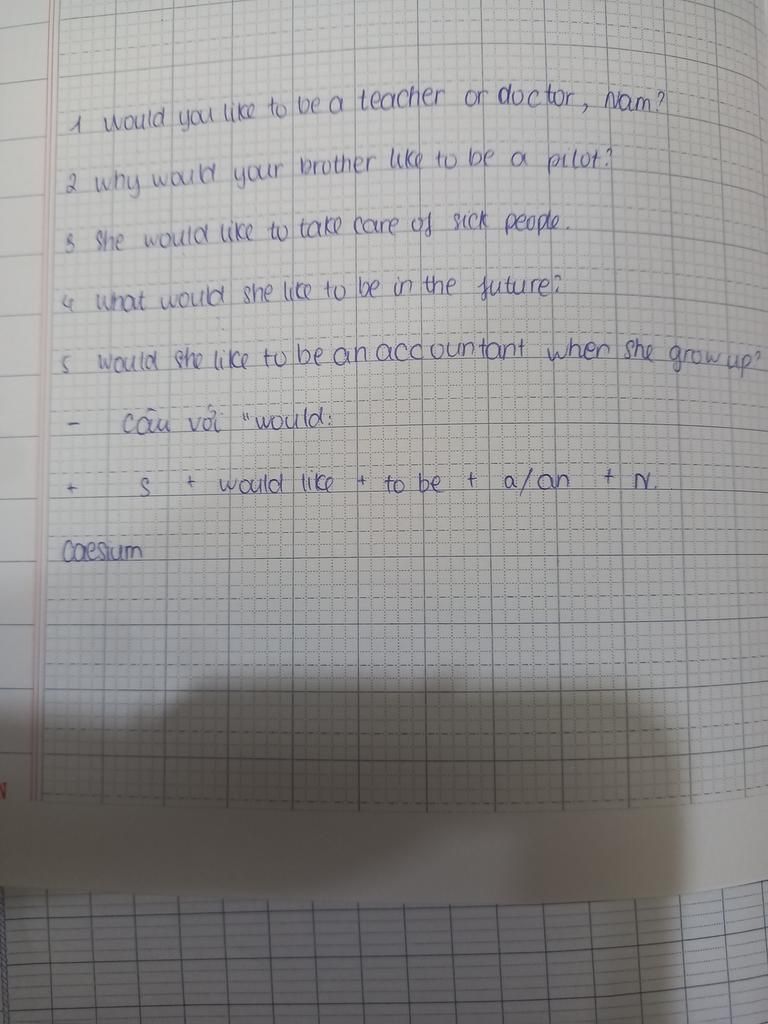 1 would you like to be a teacher or doctor, Nam?
2 why would your brother like to be a pilot?
3 she would like to take care of sick people.
4 what would she like to be in the future?
5 would she like to be an accountant when she grow up?
- câu với "would:
+ S + would like + to be + a/an + N.
caesium
N